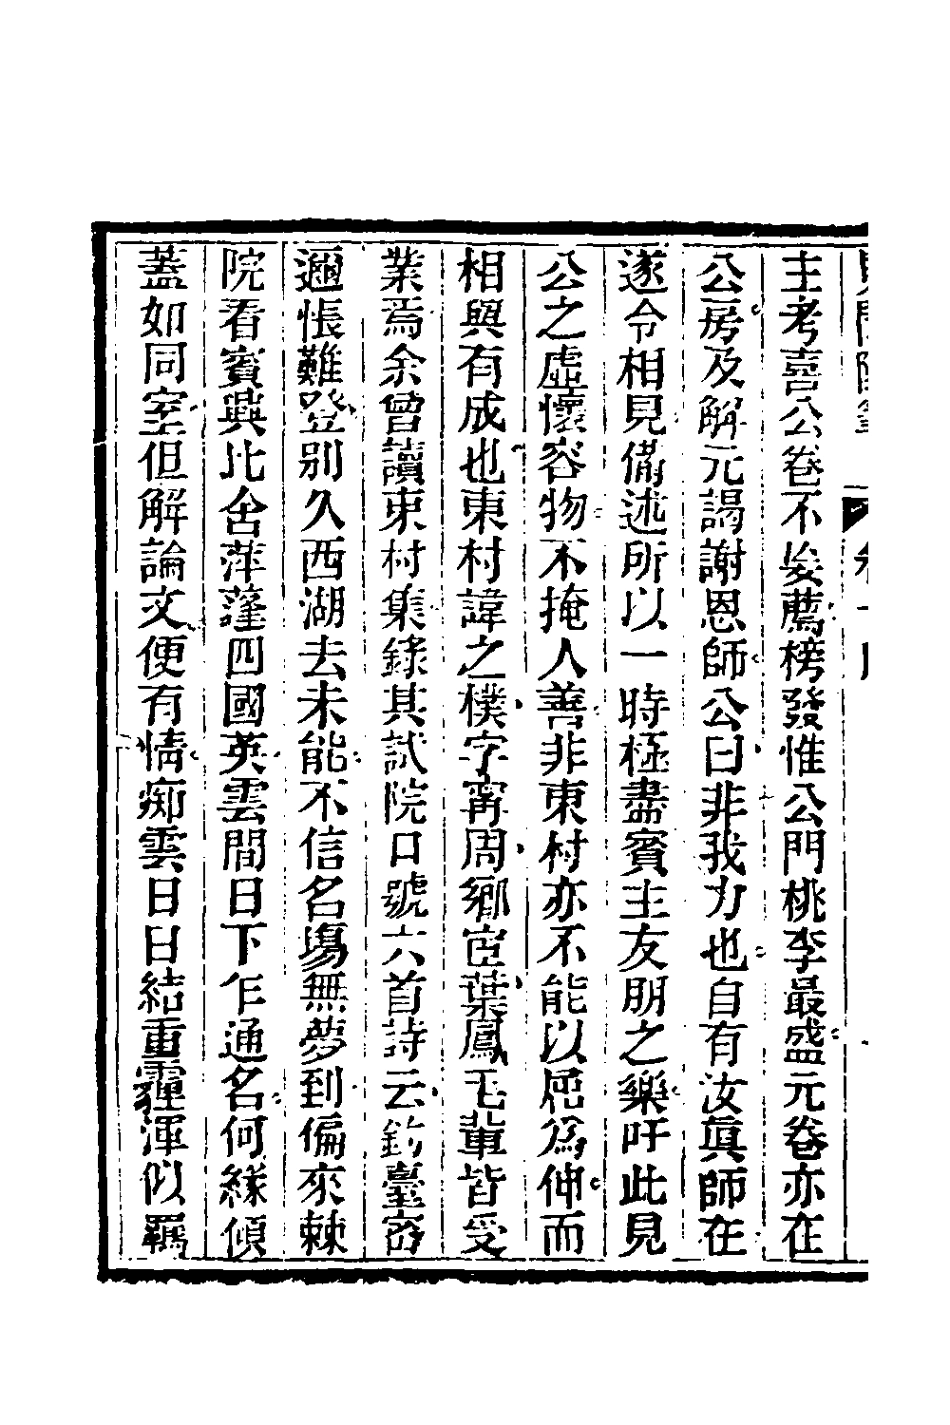 主考喜公卷不俟薦榜發惟公門桃李最盛元卷亦在
公房及解元謁謝恩師公曰非我力也自有汝眞師在
遂令相見備述所以一時極盡賓主友朋之樂吁此見
公之虛懷容物不掩人善非東村亦不能以屈爲伸而
相與有成也東村諱之樸字甯周鄉宦葉鳳毛輩皆受
業焉余曾讀東村集錄其試院口號六首詩云釣臺密
邇悵難登別久西湖去未能不信名塲無夢到偏來棘
院看賓興比舍萍蓬四國英雲間日下乍通名何緣傾
蓋如同室但解論文便有情痴雲日日結重霾渾似羈